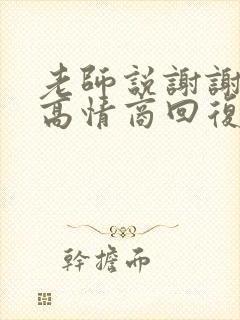 老師説謝謝
高情商回復
幹擔而